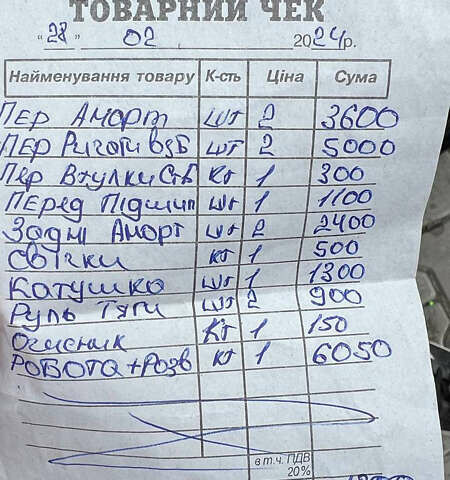 ТОВАРНИЙ ЧЕК
"28" 02 2024р.
Найменування товару К-сть Ціна Сума
ПЕР АМОРТ шт 2 3600
ПЕР Ричаги ВЗБ шт 2 5000
ПЕР Втулки СТБ Кт 1 300
ПЕРЕД Підшип шт 1 1100
Задні Аморт шт 2 2400
Свічки кт 1 500
Катушка шт 1 1300
Руль Тяги шт 2 900
Очисник Кт 1 150
РОБОТА+РОЗВ кт 1 6050
в т.ч. ПДВ
20%